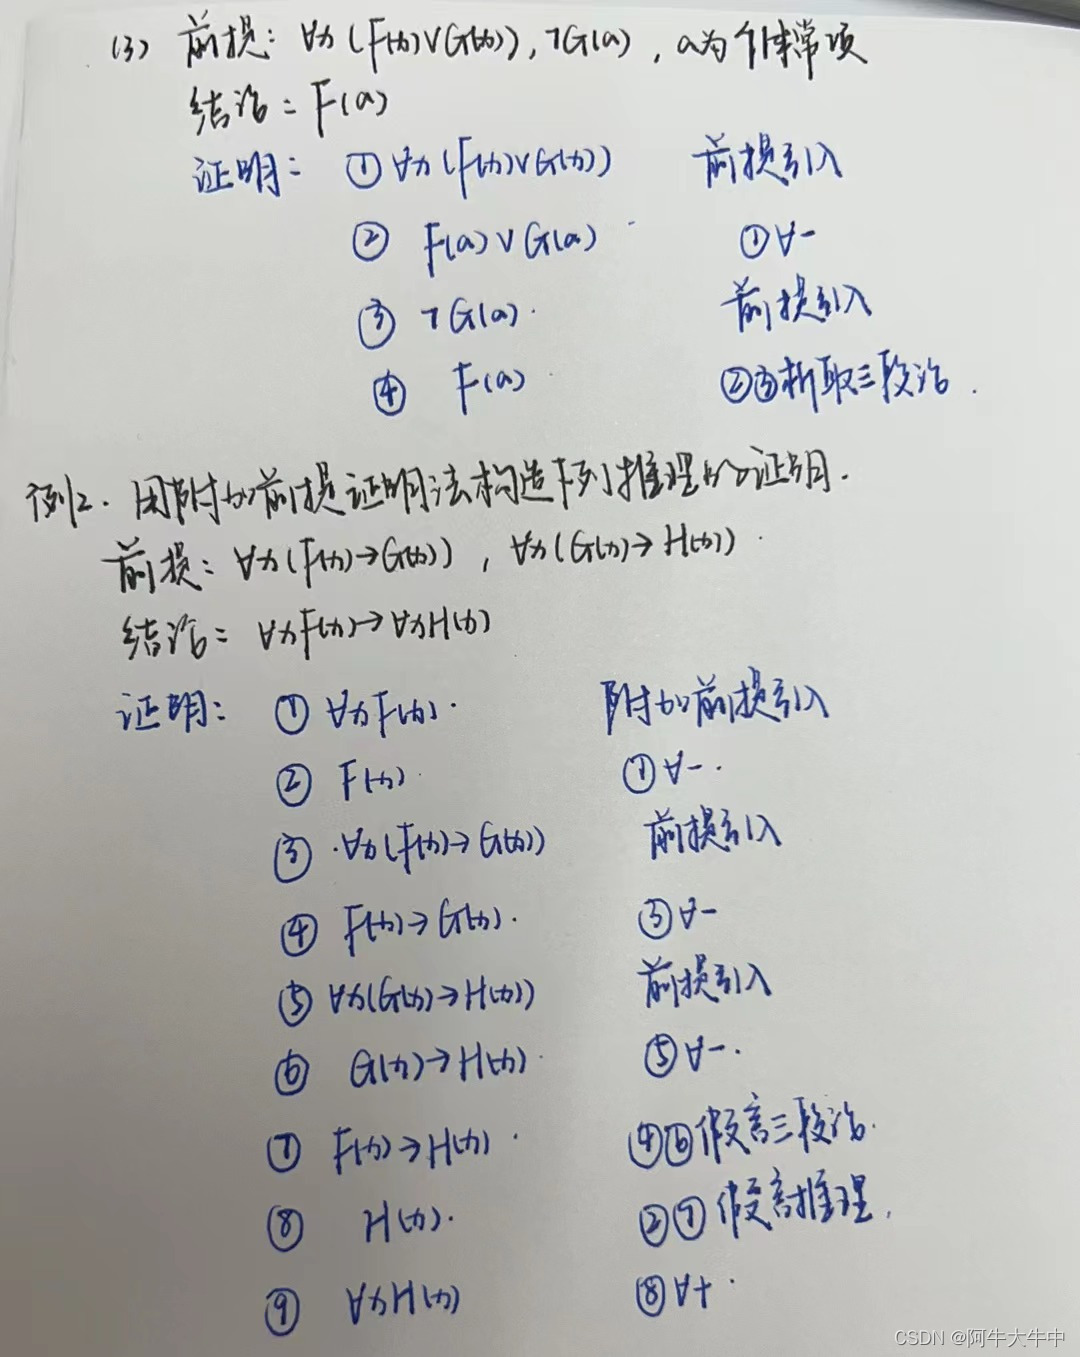 (3) 前提: ∀x(F(x)∨G(x)), ¬G(a), a为个体常项
结论: F(a)
证明: ① ∀x(F(x)∨G(x)) 前提引入
② F(a)∨G(a) ①∀-
③ ¬G(a) 前提引入
④ F(a) ②③析取三段论.
例2. 用附加前提证明法构造下列推理的证明.
前提: ∀x(F(x)→G(x)), ∀x(G(x)→H(x)).
结论: ∀xF(x)→∀xH(x)
证明: ① ∀xF(x). 附加前提引入
② F(x) ①∀-.
③ ∀x(F(x)→G(x)) 前提引入
④ F(x)→G(x). ③∀-
⑤ ∀x(G(x)→H(x)) 前提引入
⑥ G(x)→H(x) ⑤∀-.
⑦ F(x)→H(x) ④⑥假言三段论.
⑧ H(x). ②⑦假言推理.
⑨ ∀xH(x) ⑧∀+.
CSDN @阿牛大牛中